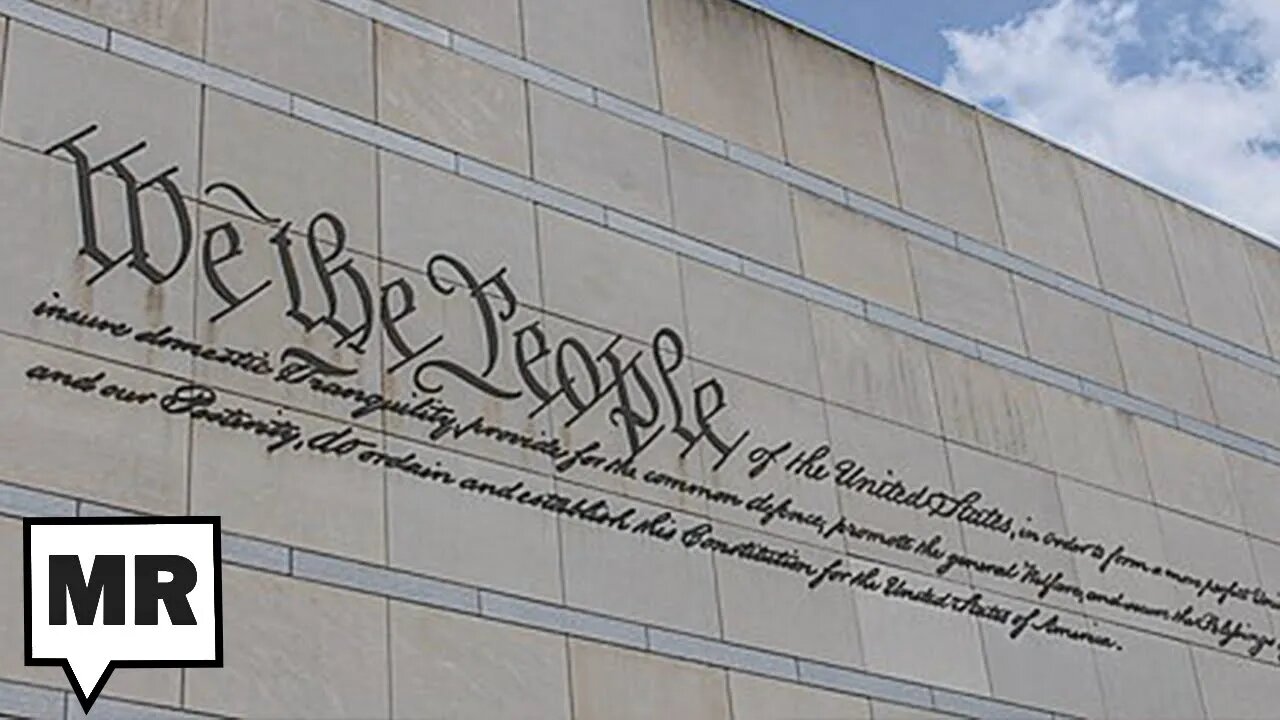 We the People of the United States, in order to form a more perfect
insure domestic Tranquility, provide for the common defence, promote the general Welfare, and secure the Blessings
and our Posterity, do ordain and establish this Constitution for the United States of America.
MR